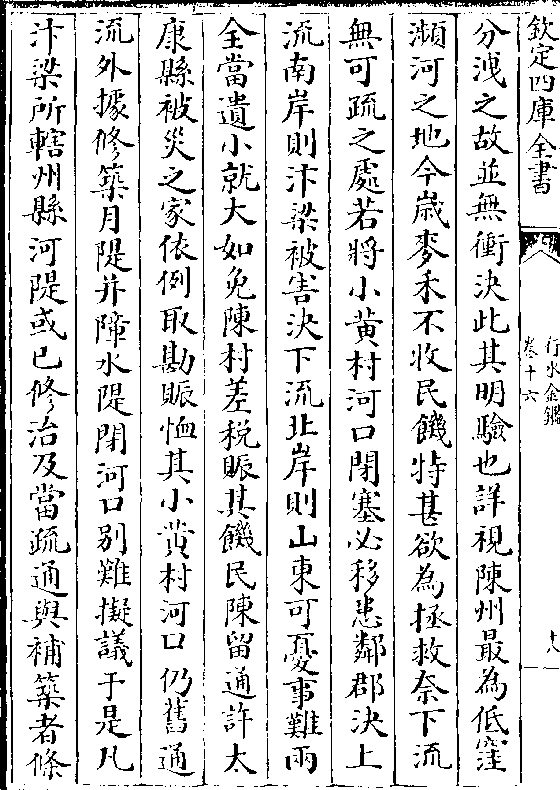 欽定四庫全書
行水金鑑
卷十六
十八
分洩之故並無衝決此其明驗也詳視陳州最為低窪
瀕河之地今嵗麥禾不收民饑特甚欲為拯救奈下流
無可疏之處若將小黄村河口閉塞必移患鄰郡決上
流南岸則汴梁被害決下流北岸則山東可憂事難兩
全當遺小就大如免陳村差税賑其饑民陳留通許太
康縣被災之家依例取勘賑恤其小黄村河口仍舊通
流外據修築月隄并障水隄閉河口别難擬議于是凡
汴梁所轄州縣河隄或已修治及當疏通與補築者條